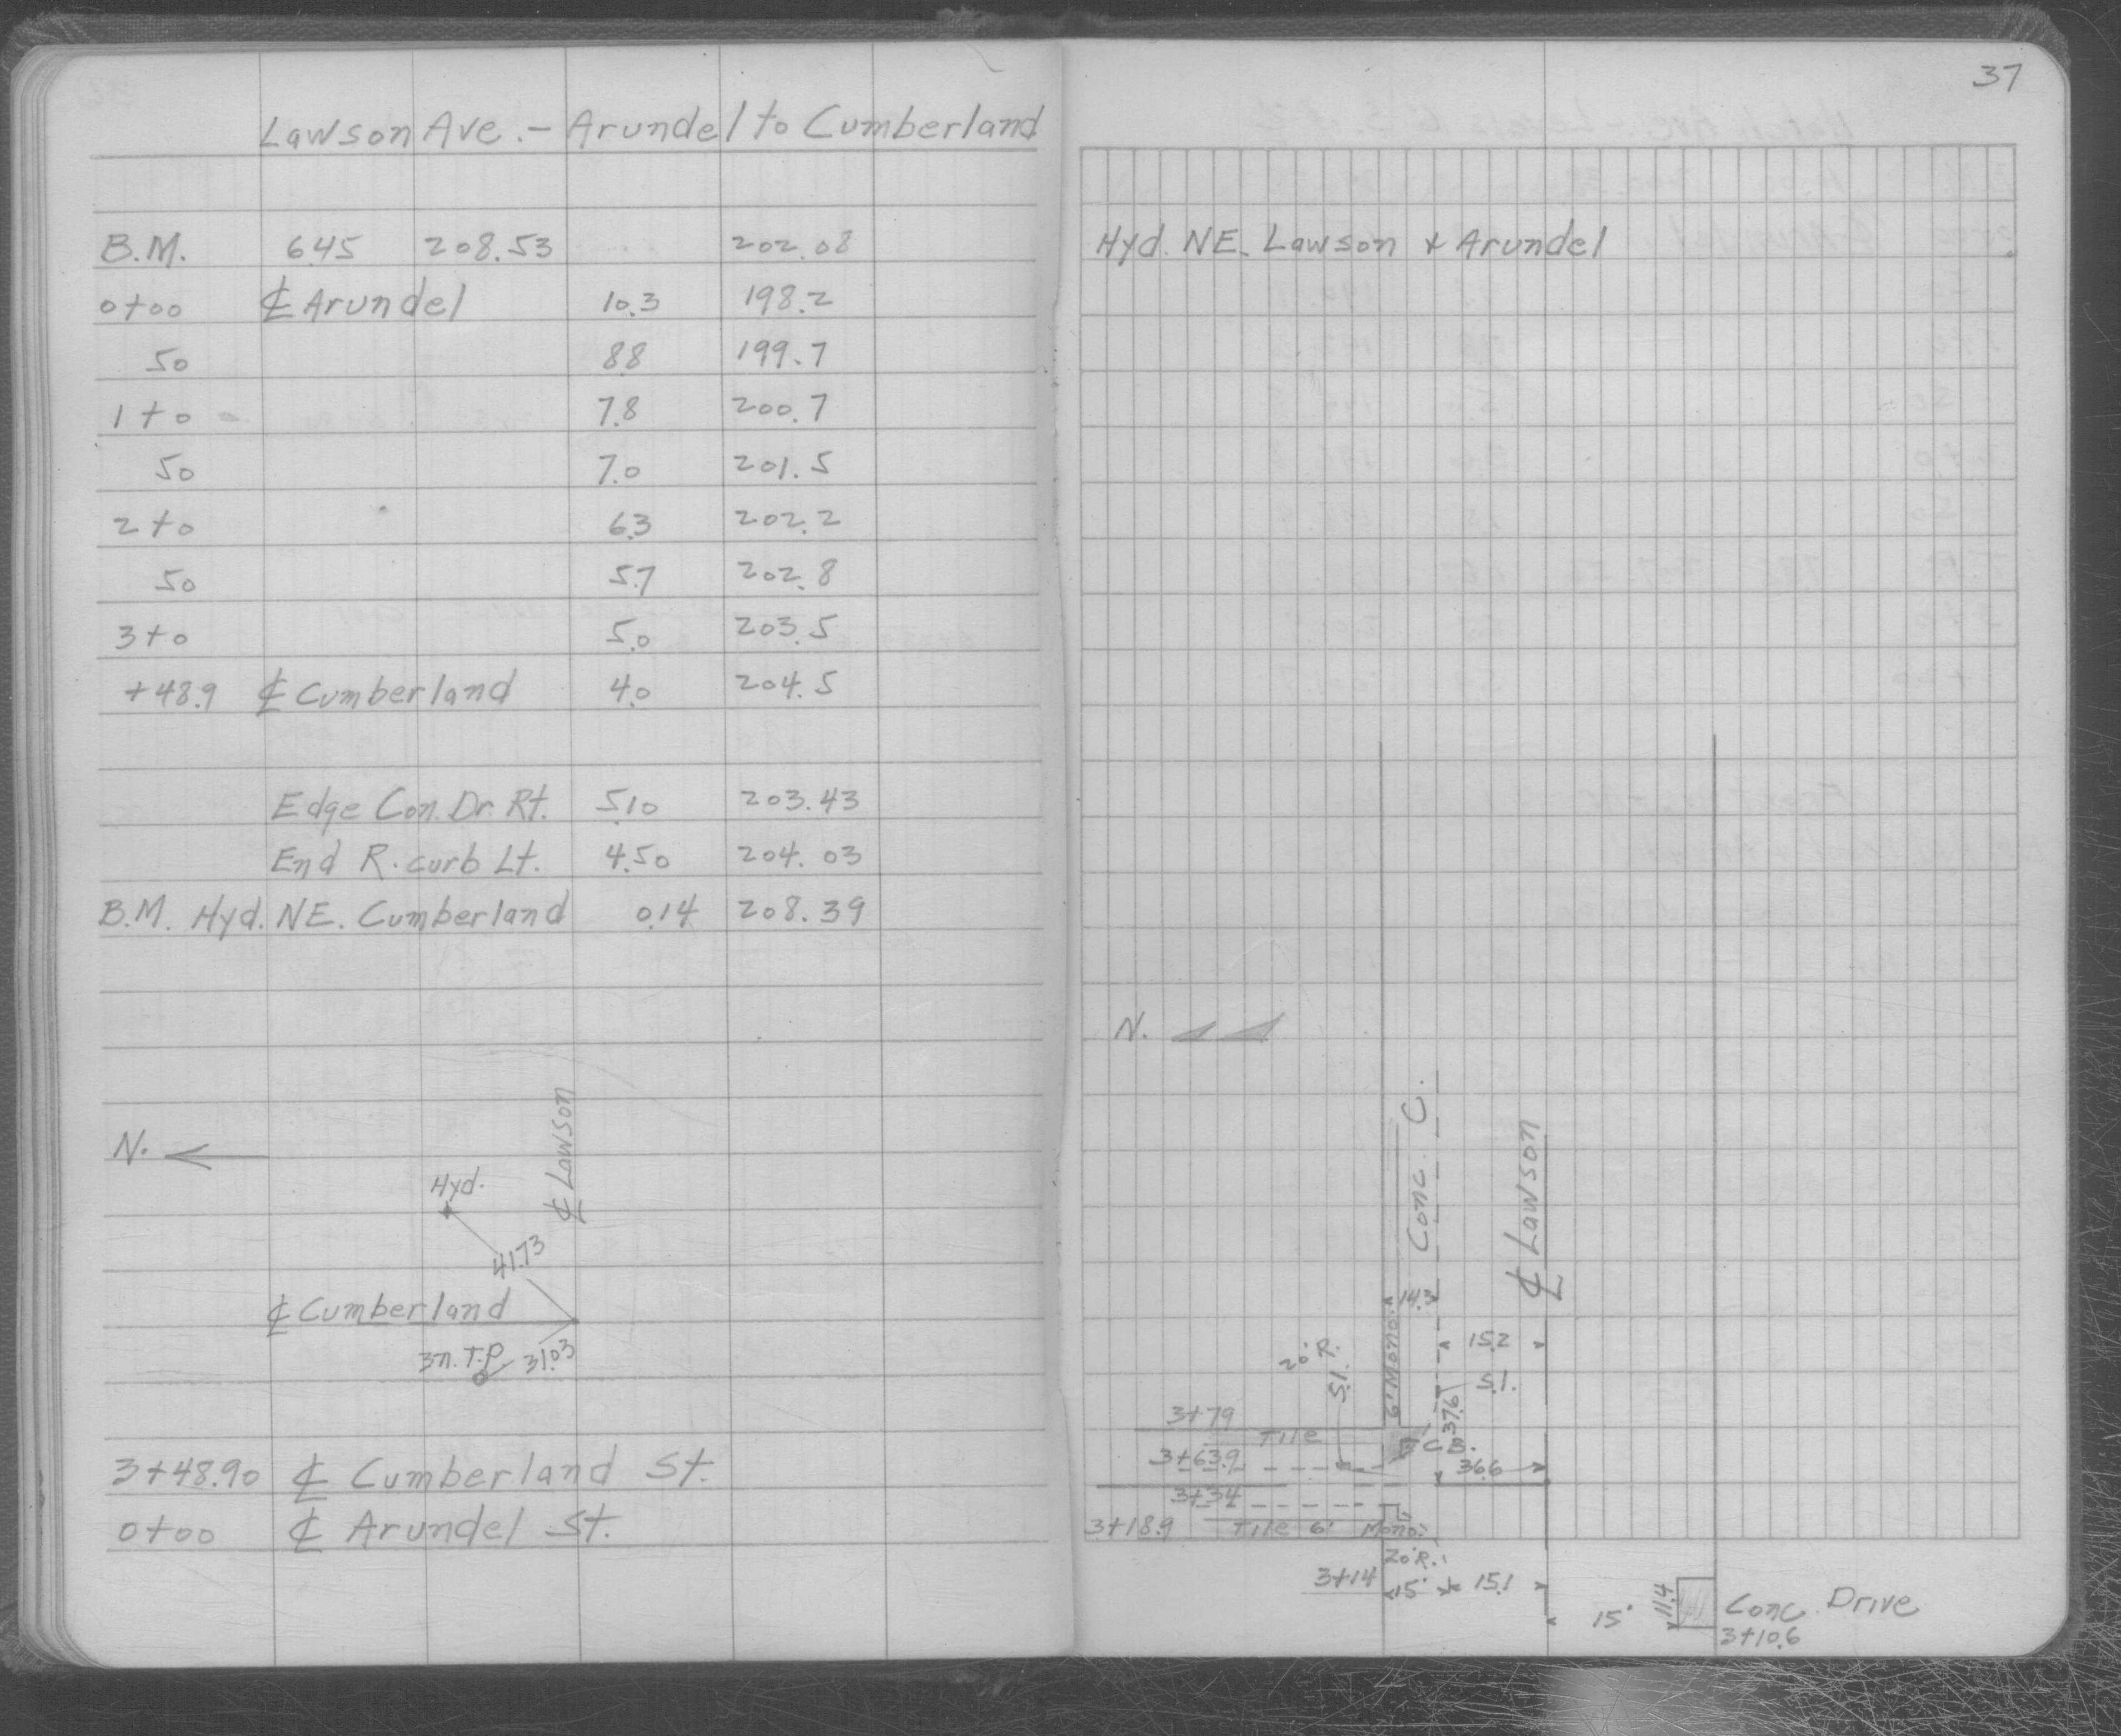 37
Lawson Ave. - Arundel to Cumberland
B.M. 6.45 208.53 202.08
0+00 ℄ Arundel 10.3 198.2
50 8.8 199.7
1+0 7.8 200.7
50 7.0 201.5
2+0 6.3 202.2
50 5.7 202.8
3+0 5.0 203.5
+48.9 ℄ Cumberland 4.0 204.5
Edge Con. Dr. Rt. 5.10 203.43
End R. curb Lt. 4.50 204.03
B.M. Hyd. NE. Cumberland 0.14 208.39
N.
℄ Lawson
Hyd.
41.73
℄ Cumberland
T.P. 31.03
3+48.90 ℄ Cumberland St.
0+00 ℄ Arundel St.
Hyd. NE. Lawson & Arundel
N.
Conc. C.
℄ Lawson
14.3
6' Mono.
15.2
20' R.
5.1.
5.1.
37.6
3+79
Tile
3+63.9
C.B.
36.6
3+34
3+18.9 Tile 6' Mono.
20' R.
3+14 15' 15.1
15' 11.4 Conc. Drive
3+10.6